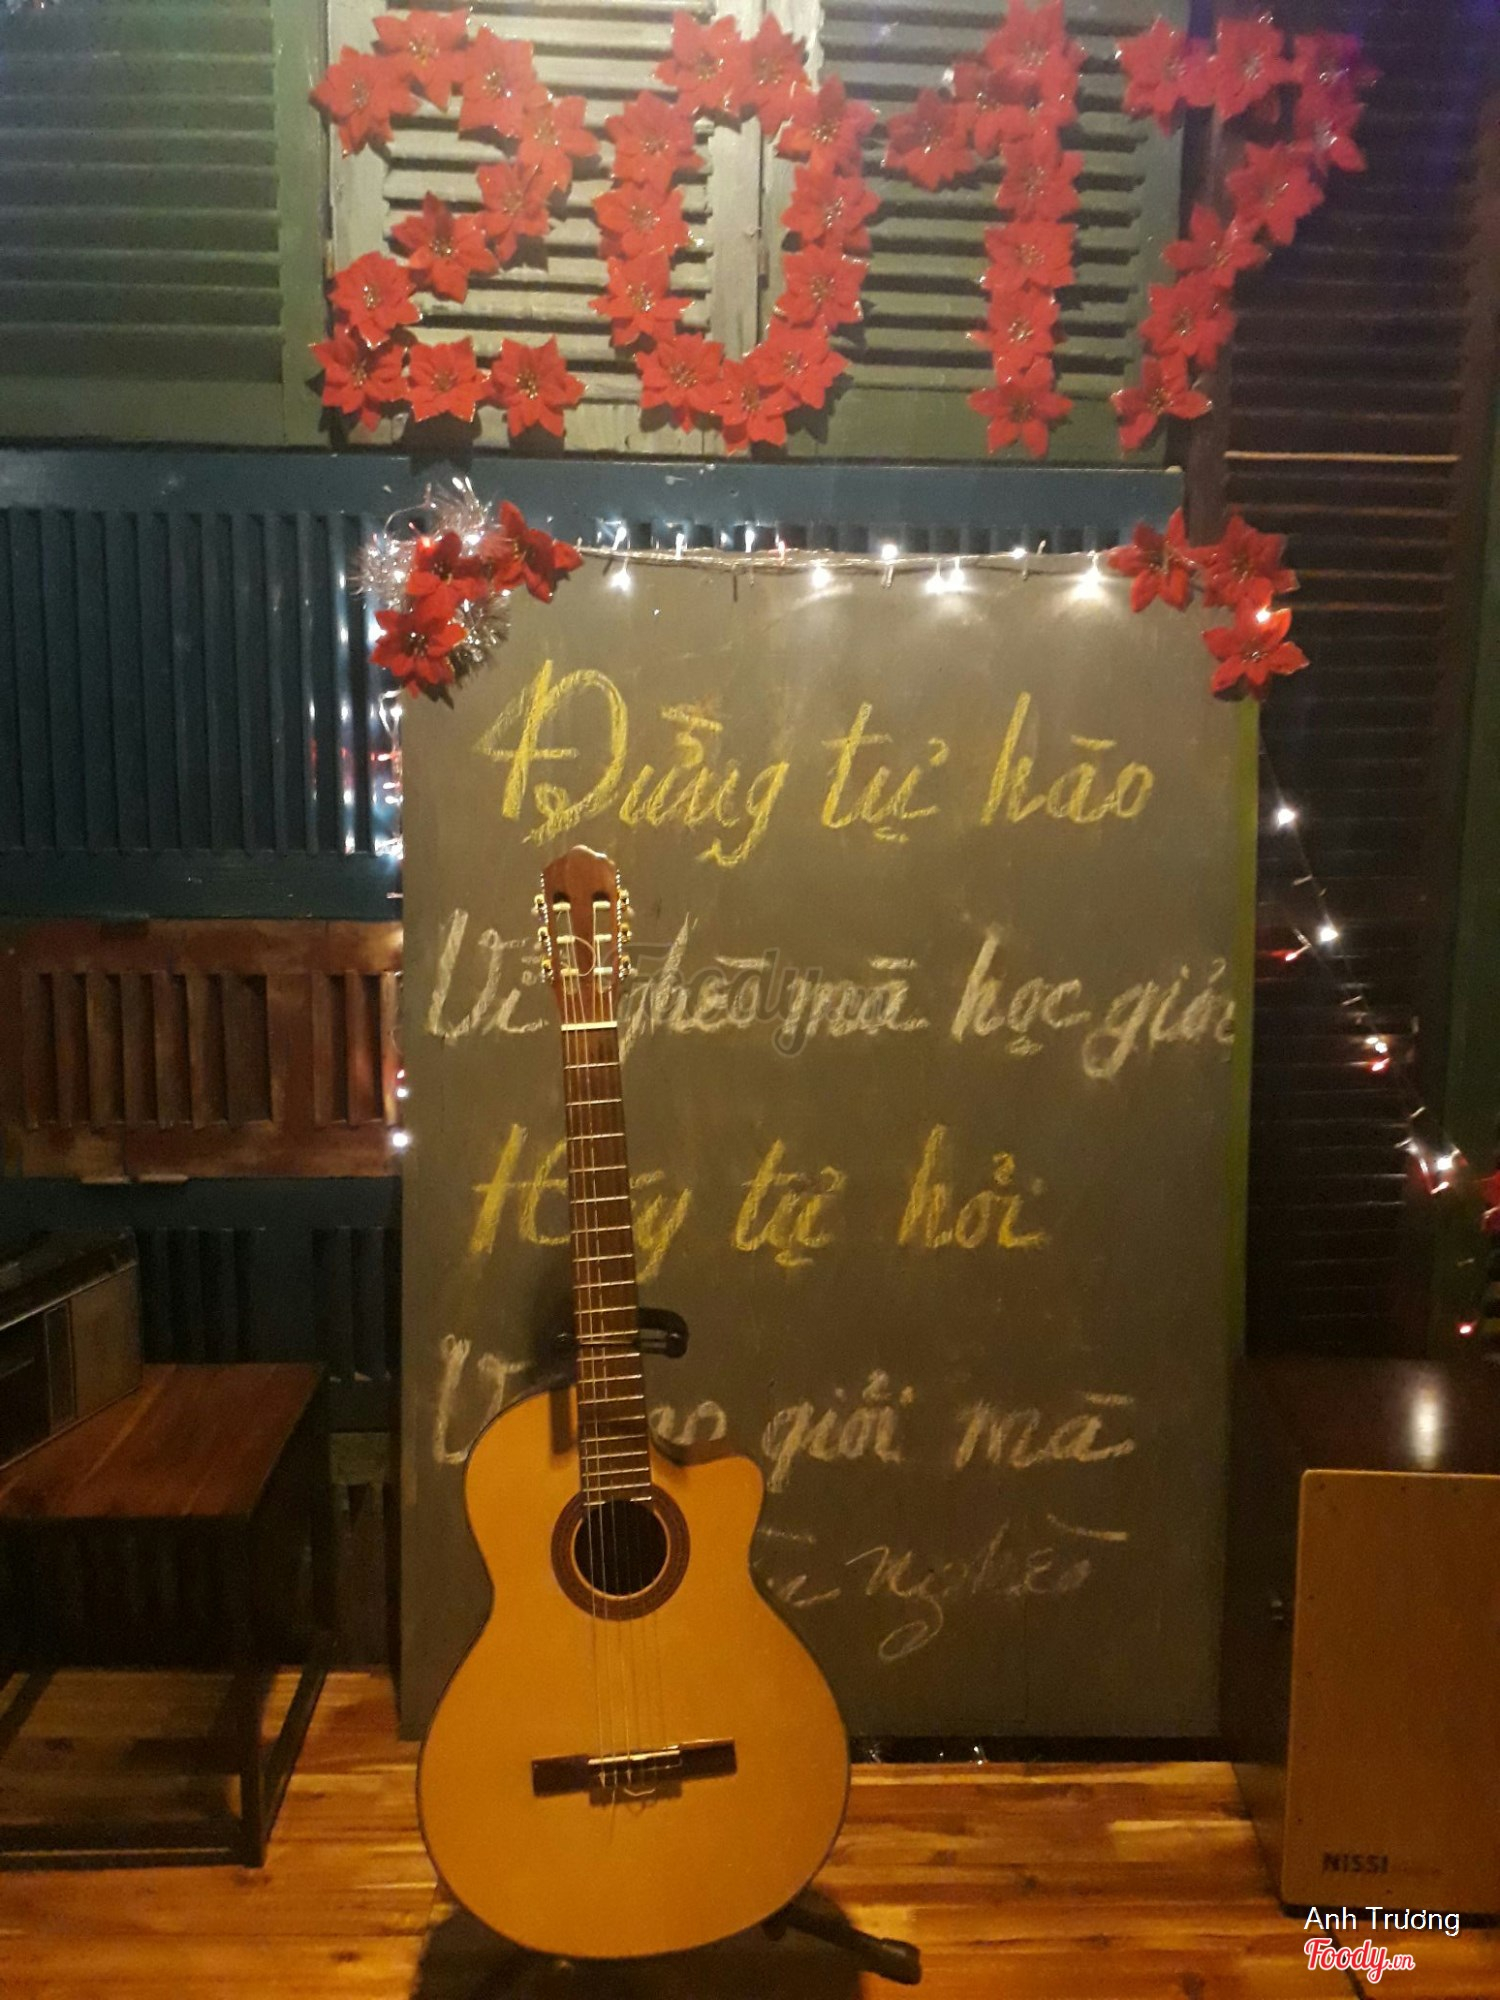 2017
Đừng tự hào
Vì nghèo mà học giỏi
Hãy tự hỏi
giỏi mà
nghèo
NISSI
Foody.vn
Anh Trương
Foody.vn